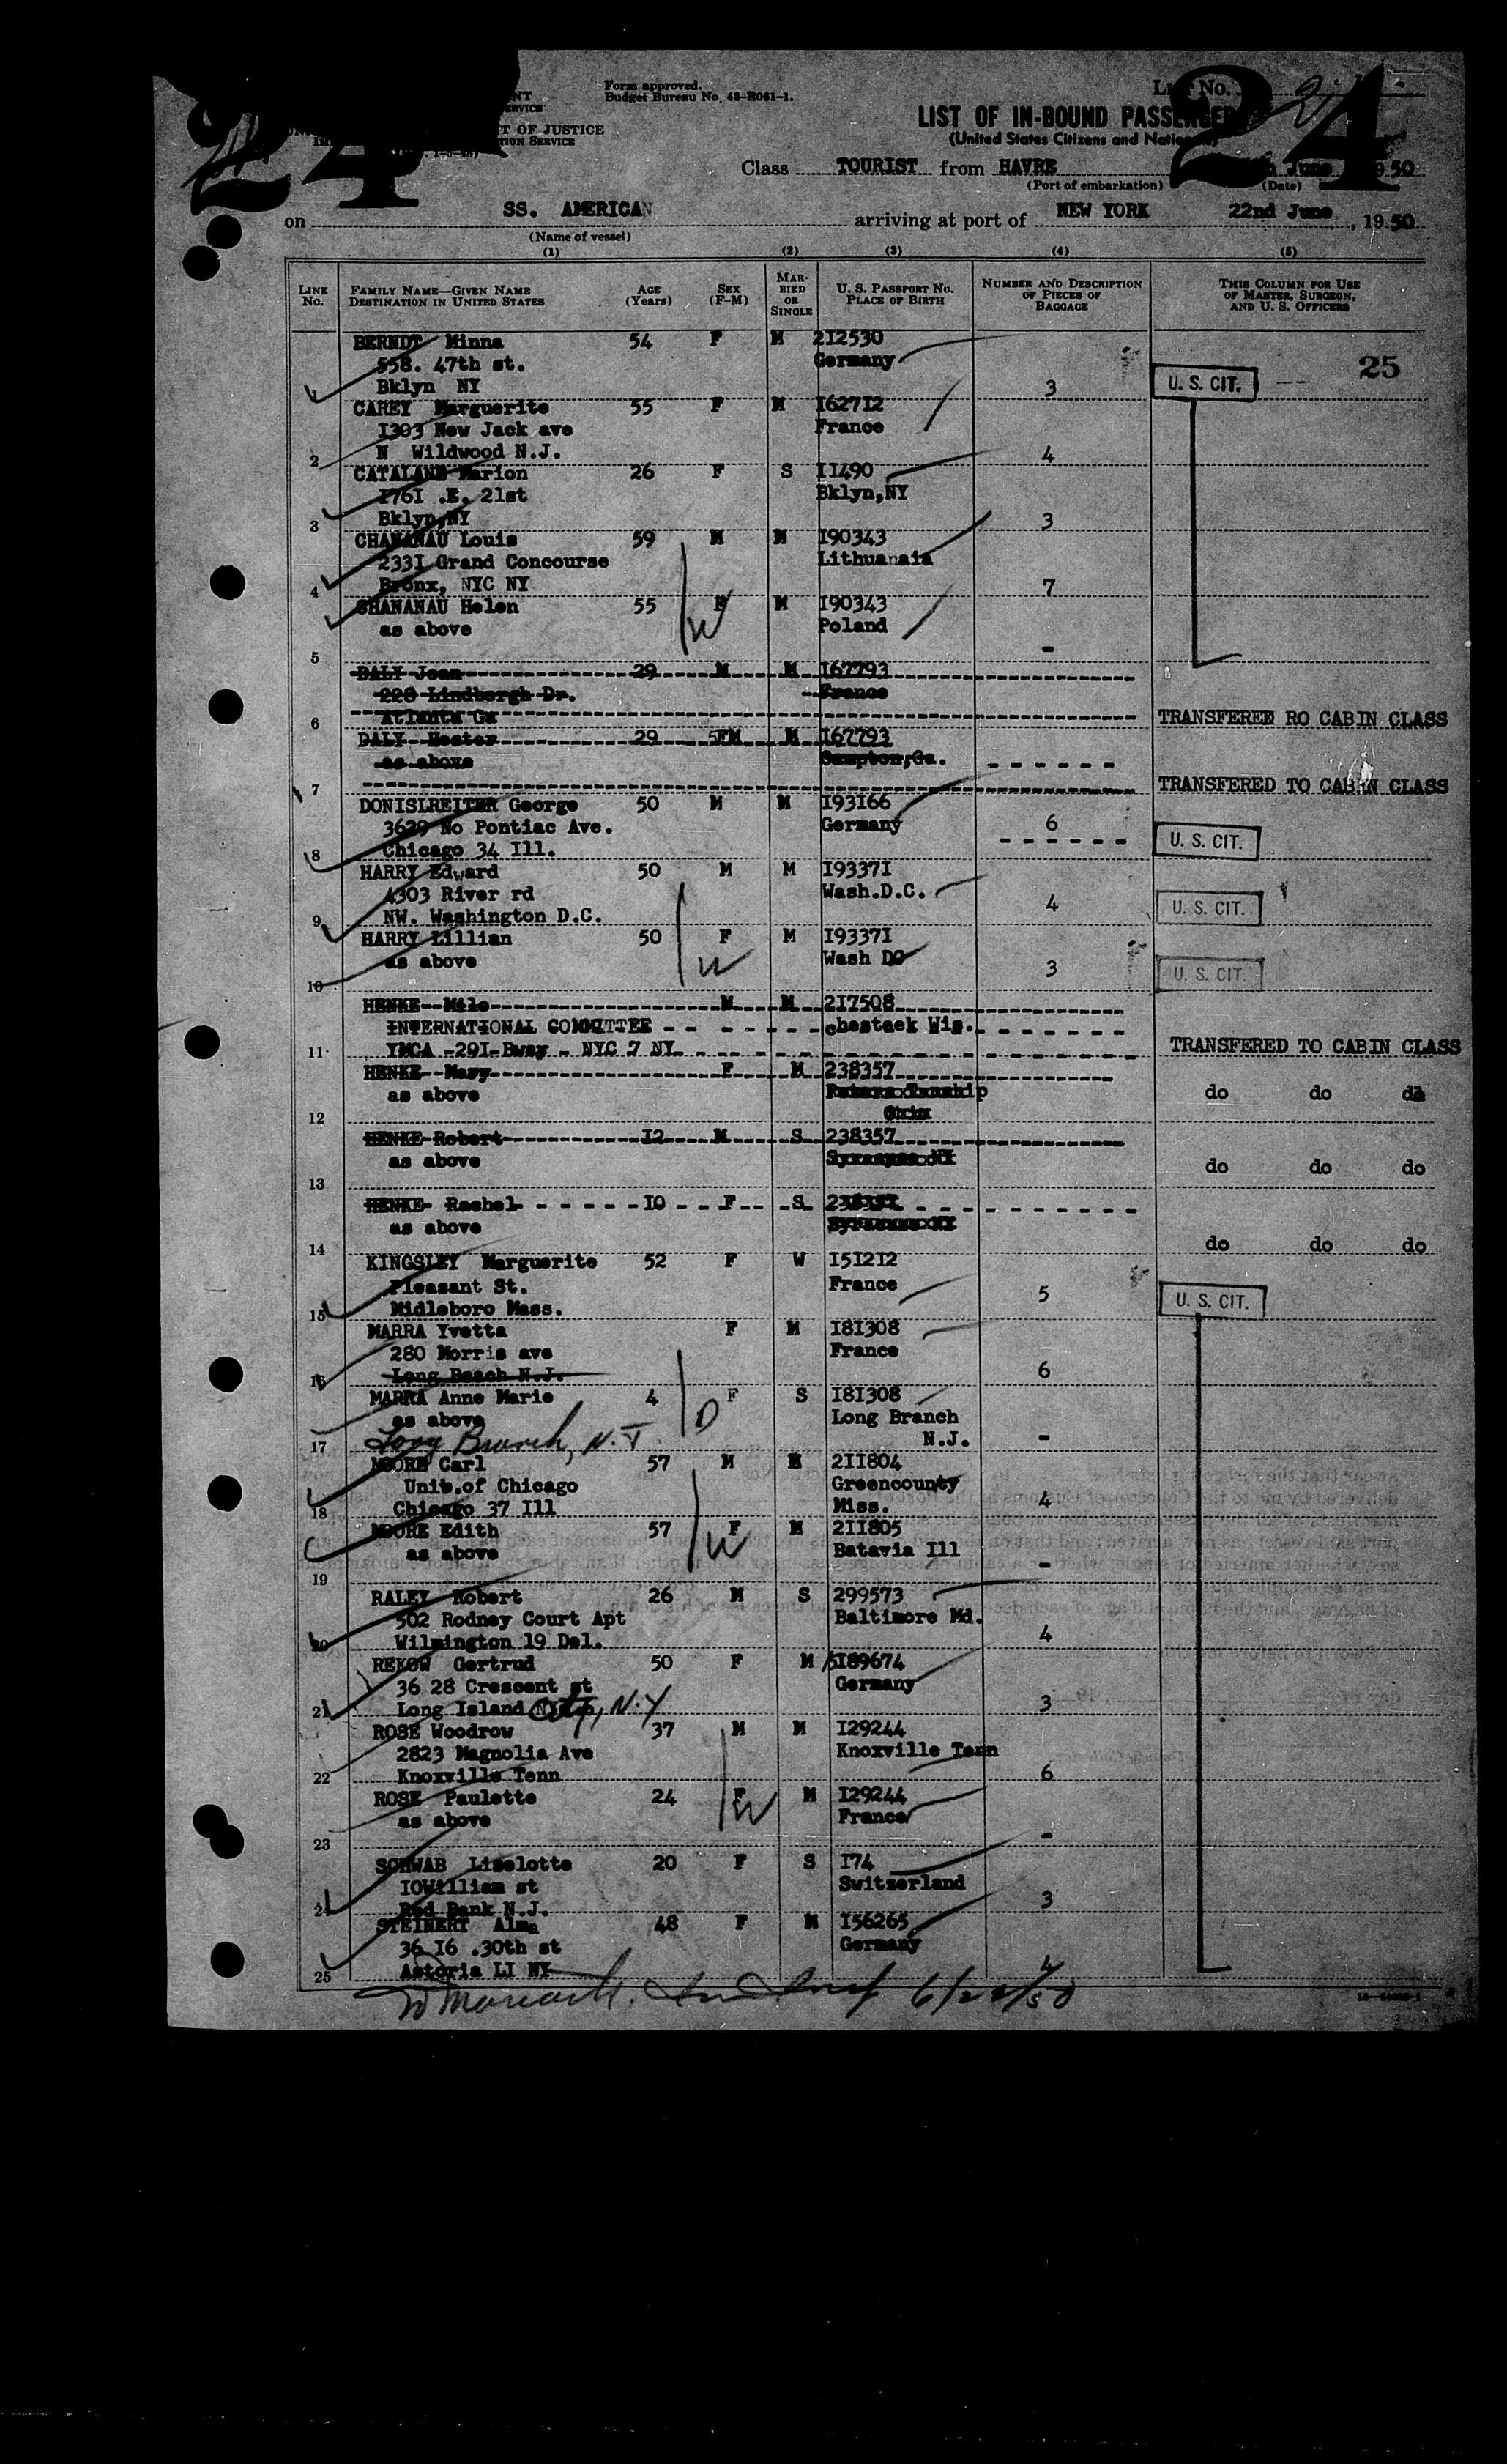 24
24
Form approved.
Budget Bureau No. 43-R061-1.
List No.
T OF JUSTICE
LIST OF IN-BOUND PASSENGERS
(United States Citizens and Nationals)
Class TOURIST from HAVRE June 1950
(Port of embarkation) (Date)
on SS. AMERICAN arriving at port of NEW YORK 22nd June, 1950
(Name of vessel)
(1) (2) (3) (4) (5)
LINE No. FAMILY NAME—GIVEN NAME DESTINATION IN UNITED STATES AGE (Years) SEX (F-M) MARRIED OR SINGLE U. S. PASSPORT No. PLACE OF BIRTH NUMBER AND DESCRIPTION OF PIECES OF BAGGAGE THIS COLUMN FOR USE OF MASTER, SURGEON, AND U. S. OFFICERS
BERNDT Minna 54 F M 212530
558. 47th st. Germany 25
1 Bklyn NY 3 U. S. CIT.
CAREY Marguerite 55 F M I627I2
I303 New Jack ave France
2 N Wildwood N.J. 4
CATALANO Marion 26 F S II490
I76I .E. 21st Bklyn,NY
3 Bklyn,NY 3
CHANANAU Louis 59 M M I90343
233I Grand Concourse Lithuanaia
4 Bronx, NYC NY 7
CHANANAU Helen 55 F M I90343
as above W Poland
5 -
DALY Jean 29 M M I67793
220 Lindbergh Dr. France
6 Atlanta Ga TRANSFERED RO CABIN CLASS
DALY Hester 29 FM M I67793
as above Ga.
7 TRANSFERED TO CABIN CLASS
DONISLREITER George 50 M M I93I66
3629 No Pontiac Ave. Germany 6
8 Chicago 34 Ill. U. S. CIT.
HARRY Edward 50 M M I9337I
4303 River rd Wash.D.C.
9 NW. Washington D.C. 4 U. S. CIT.
HARRY Lillian 50 F M I9337I
as above W Wash DC
10 3 U. S. CIT.
HENKE Milo M M 2I7508
INTERNATIONAL COMMITTEE chesteek Wis.
11 YMCA -29I-Bway - NYC 7 NY TRANSFERED TO CABIN CLASS
HENKE Mary F M 238357
as above do do do
12
HENKE Robert I2 M S 238357
as above Syracuse NY do do do
13
HENKE Rachel IO F S 238357
as above Syracuse NY
14 do do do
KINGSLEY Marguerite 52 F W I5I2I2
Pleasant St. France
15 Midleboro Mass. 5 U. S. CIT.
MARRA Yvetta F M I8I308
280 Morris ave France
16 Long Beach N.J. 6
MARRA Anne Marie 4 F S I8I308
as above D Long Branch
17 Long Branch, N.J. N.J. -
MOORE Carl 57 M M 2II804
Unit.of Chicago Greencounty
18 Chicago 37 Ill Miss. 4
MOORE Edith 57 F M 2II805
as above W Batavia Ill
19 -
RALEY Robert 26 M S 299573
502 Rodney Court Apt Baltimore Md.
20 Wilmington 19 Del. 4
REKOW Gertrud 50 F M I89674
36 28 Crescent st Germany
21 Long Island City, N.Y 3
ROSE Woodrow 37 M M I29244
2823 Magnolia Ave Knoxville Tenn
22 Knoxville Tenn 6
ROSE Paulette 24 F M I29244
as above W France
23 -
SCHWAB Liselotte 20 F S I74
IOWilliam st Switzerland
24 Red Bank N.J. 3
STEINERT Alma 48 F M I56265
36 I6 .30th st Germany
25 Astoria LI NY 4
6/22/50